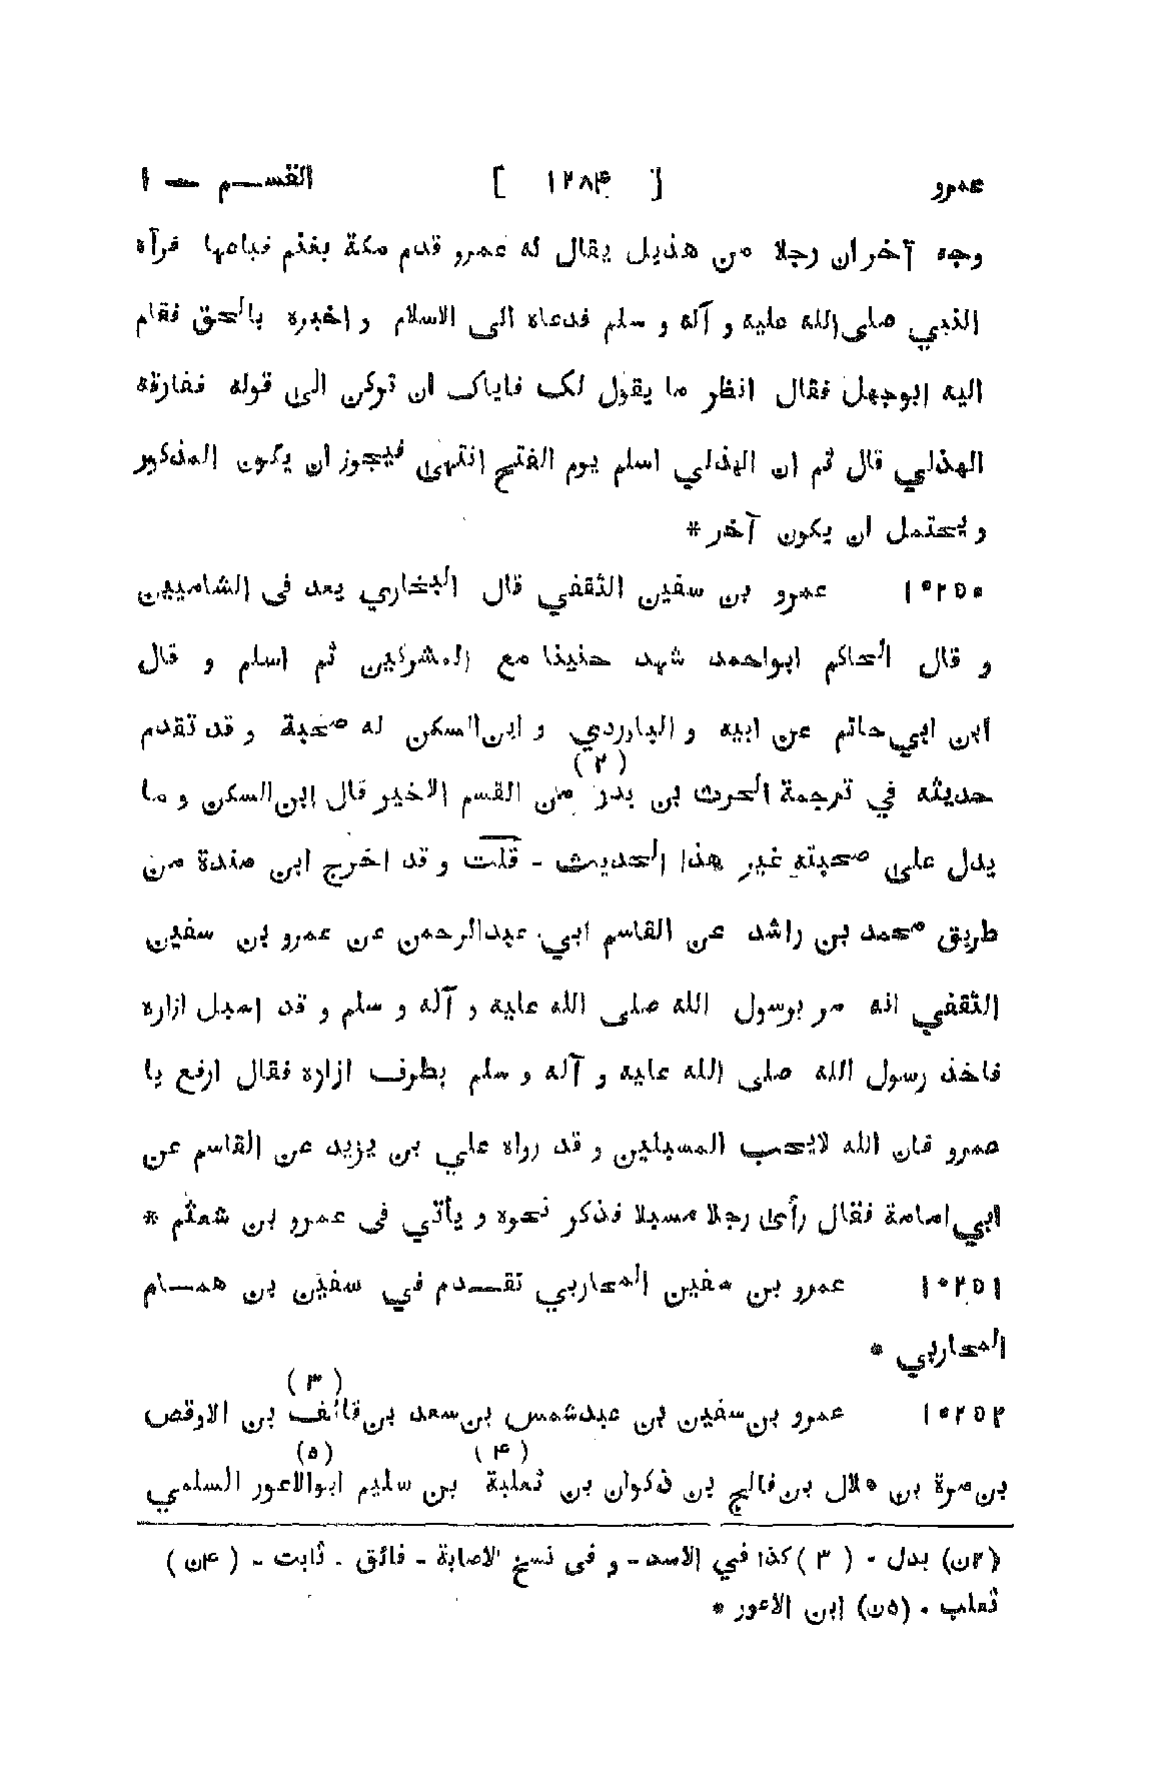 عمرو [ ١٢٨۴ ] القســم — ١
وجه آخر ان رجلا من هذيل يقال له عمرو قدم مكة بغنم فباعها فرآه
النبي صلى الله عليه و آله و سلم فدعاه الى الاسلام و اخبره بالحق فقام
اليه ابوجهل فقال انظر ما يقول لك فاياك ان تركن الى قوله ففارقه
الهذلي قال ثم ان الهذلي اسلم يوم الفتح انتهى فيجوز ان يكون المذكور
و يحتمل ان يكون آخر *
١٠٢٥٠ عمرو بن سفين الثقفي قال البخاري يعد فى الشاميين
و قال الحاكم ابواحمد شهد حنينا مع المشركين ثم اسلم و قال
ابن ابي حاتم عن ابيه و الباوردي و ابن السكن له صحبة و قد تقدم
حديثه في ترجمة الحرث بن بدر (٢) من القسم الاخير قال ابن السكن و ما
يدل على صحبته غير هذا الحديث - قلت و قد اخرج ابن مندة من
طريق محمد بن راشد عن القاسم ابي عبدالرحمن عن عمرو بن سفين
الثقفي انه مر برسول الله صلى الله عليه و آله و سلم و قد اسبل ازاره
فاخذ رسول الله صلى الله عليه و آله و سلم بطرف ازاره فقال ارفع يا
عمرو فان الله لايحب المسبلين و قد رواه علي بن يزيد عن القاسم عن
ابي امامة فقال رأى رجلا مسبلا فذكر نحوه و يأتي فى عمرو بن شعثم *
١٠٢٥١ عمرو بن سفين المحاربي تقــدم في سفين بن همــام
المحاربي *
١٠٢٥٢ عمرو بن سفين بن عبدشمس بن سعد بن قائف (٣) بن الاوقص
بن مرة بن هلال بن فالج بن ذكوان بن ثعلبة (۴) بن سليم ابوالاعور (٥) السلمي
(٢ن) بدل - (٣) كذا في الاسد - و فى نسخ الاصابة - فائق - ثابت - (۴ن)
ثعلب - (٥ن) ابن الاعور *